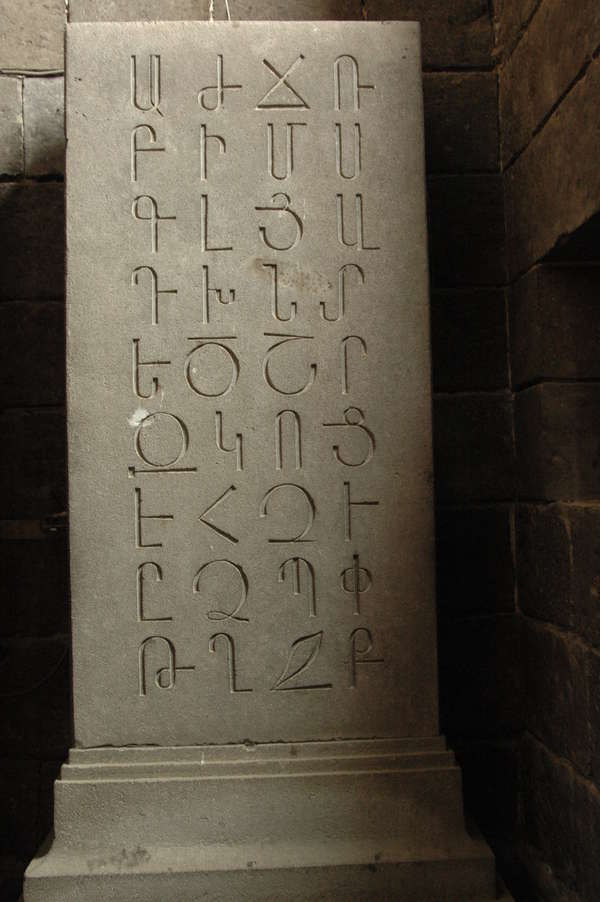 Ա Ժ Ճ Ռ
Բ Ի Մ Ս
Գ Լ Յ Վ
Դ Խ Ն Տ
Ե Ծ Շ Ր
Զ Կ Ո Ց
Է Հ Չ Ւ
Ը Ձ Պ Փ
Թ Ղ Ջ Ք